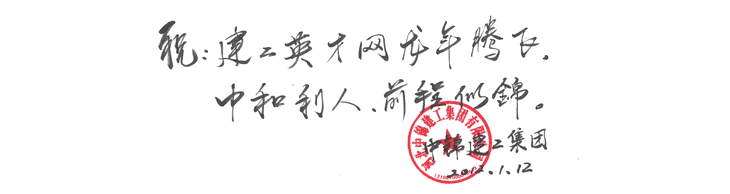 祝：建工英才网龙年腾飞.
中和利人、前程似錦。
河北中锦建工集团有限公司
中锦建工集团
2012.1.12